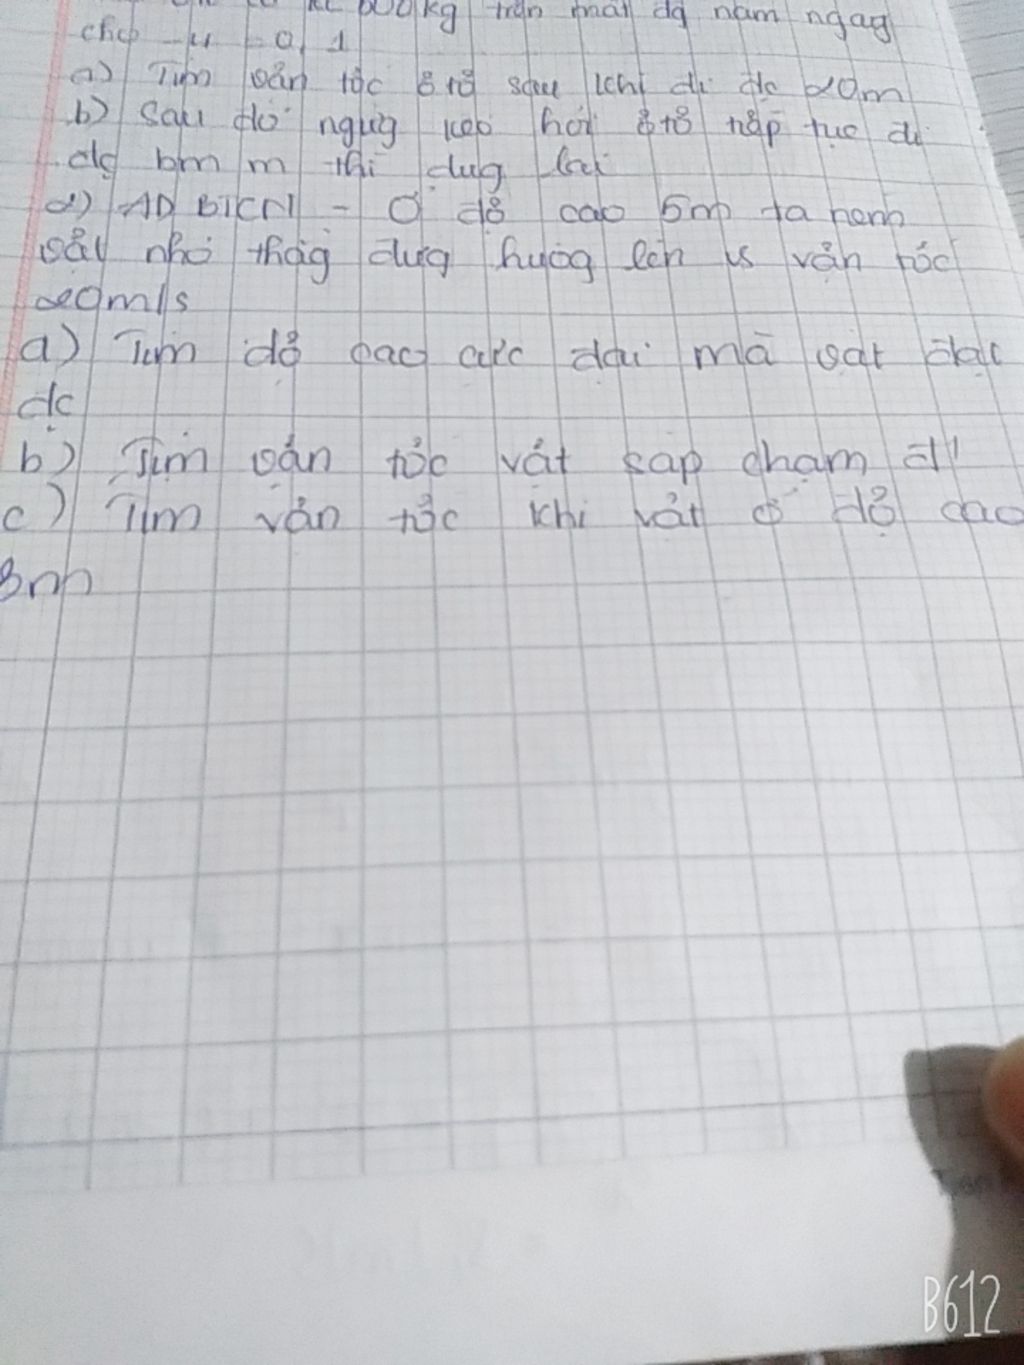 kg trên mặt dg nam ngag
cho μ = 0,1
a) Tìm vận tốc ôtô sau khi đi đc 20m
b) Sau đó ngừg kéo hỏi ôtô tiếp tục đi
đc m thì dug lại
2) AD BTCN - Ở độ cao 5m ta ném
vật nhỏ thẳg đứg hướg lên vs vận tốc
20m/s
a) Tìm độ cao cực đại mà vật đạt
đc
b) Tìm vận tốc vật sắp chạm đ'
c) Tìm vận tốc khi vật ở độ cao
3m
B612